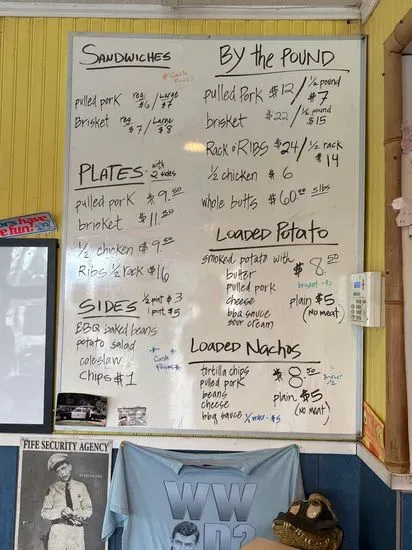 SANDWICHES
* Cash Prices *
pulled pork reg. $6 / Large $7
Brisket reg $7 / Large $8
PLATES with 2 sides
pulled pork $9.50
brisket $11.50
1/2 chicken $9.00
Ribs 1/2 rack $16
SIDES 1/2 pint $3
1 pint $5
BBQ baked beans
potato salad
coleslaw
Chips $1
* Cash Prices *
By the POUND
pulled pork $12 / 1/2 pound $7
brisket $22 / 1/2 pound $15
Rack o' RIBS $24 / 1/2 rack $14
1/2 chicken $6
whole butts $60.00 5lbs
LOADED POTATO
smoked potato with $8.50
butter
pulled pork brisket - $2
cheese plain $5
bbq sauce (NO MEAT)
sour cream
LOADED NACHOS
tortilla chips $8.50
pulled pork Brisket $2
beans plain $5
cheese (NO MEAT)
bbq sauce 1/2 order - $5
FIFE SECURITY AGENCY
WW
D?